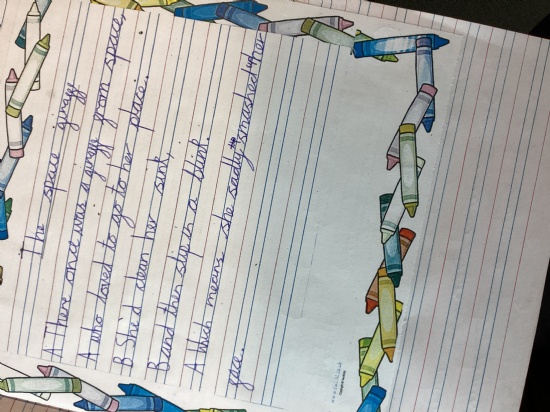 The space giraff
A There once was a giraff from space,
A who loved to go to her place.
B She'd clean her sink,
B and then slip in a blink.
A Which means she sadly smashed up her
face.